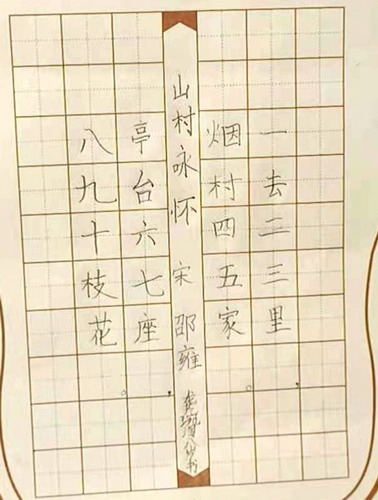 一去二三里，
烟村四五家。
山村咏怀 宋 邵雍
亭台六七座，
八九十枝花。